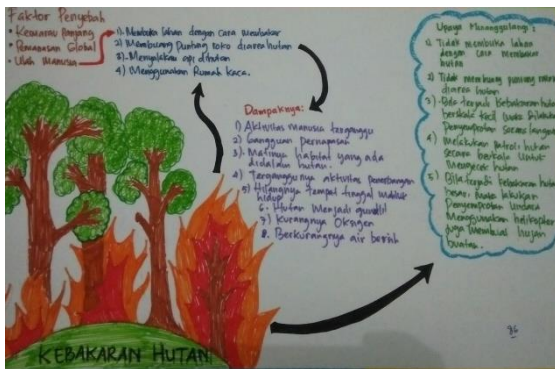 Faktor Penyebab
• Kemarau Panjang
• Pemanasan Global
• Ulah Manusia
1). Membuka lahan dengan cara membakar
2) Membuang Puntung roko diarea hutan
3). Menyalakan api dihutan
4) Menggunakan Rumah kaca.
Dampaknya:
1) Aktivitas manusia terganggu
2) Gangguan pernapasan
3). Matinya habitat yang ada
didalam hutan.
4) Terganggunya aktivitas penerbangan
5) Hilangnya tempat tinggal makhluk
hidup
6. Hutan Menjadi gundul
7) Kurangnya Oksigen
8. Berkurangnya air bersih
Upaya Menanggulangi:
1) Tidak membuka lahan
dengan cara membakar
hutan
2) Tidak membuang puntung roko
diarea hutan
3) Bila terjadi kebakaran hutan
berskala kecil
Penyemprotan secara langsung
4) Melakukan Patroli hutan
secara berkala Untuk
Mengecek hutan
5) Bila terjadi kebakaran hutan
besar, maka lakukan
Penyemprotan Undara
Menggunakan helikopter
juga Membuat hujan
buatan.
KEBAKARAN HUTAN
86